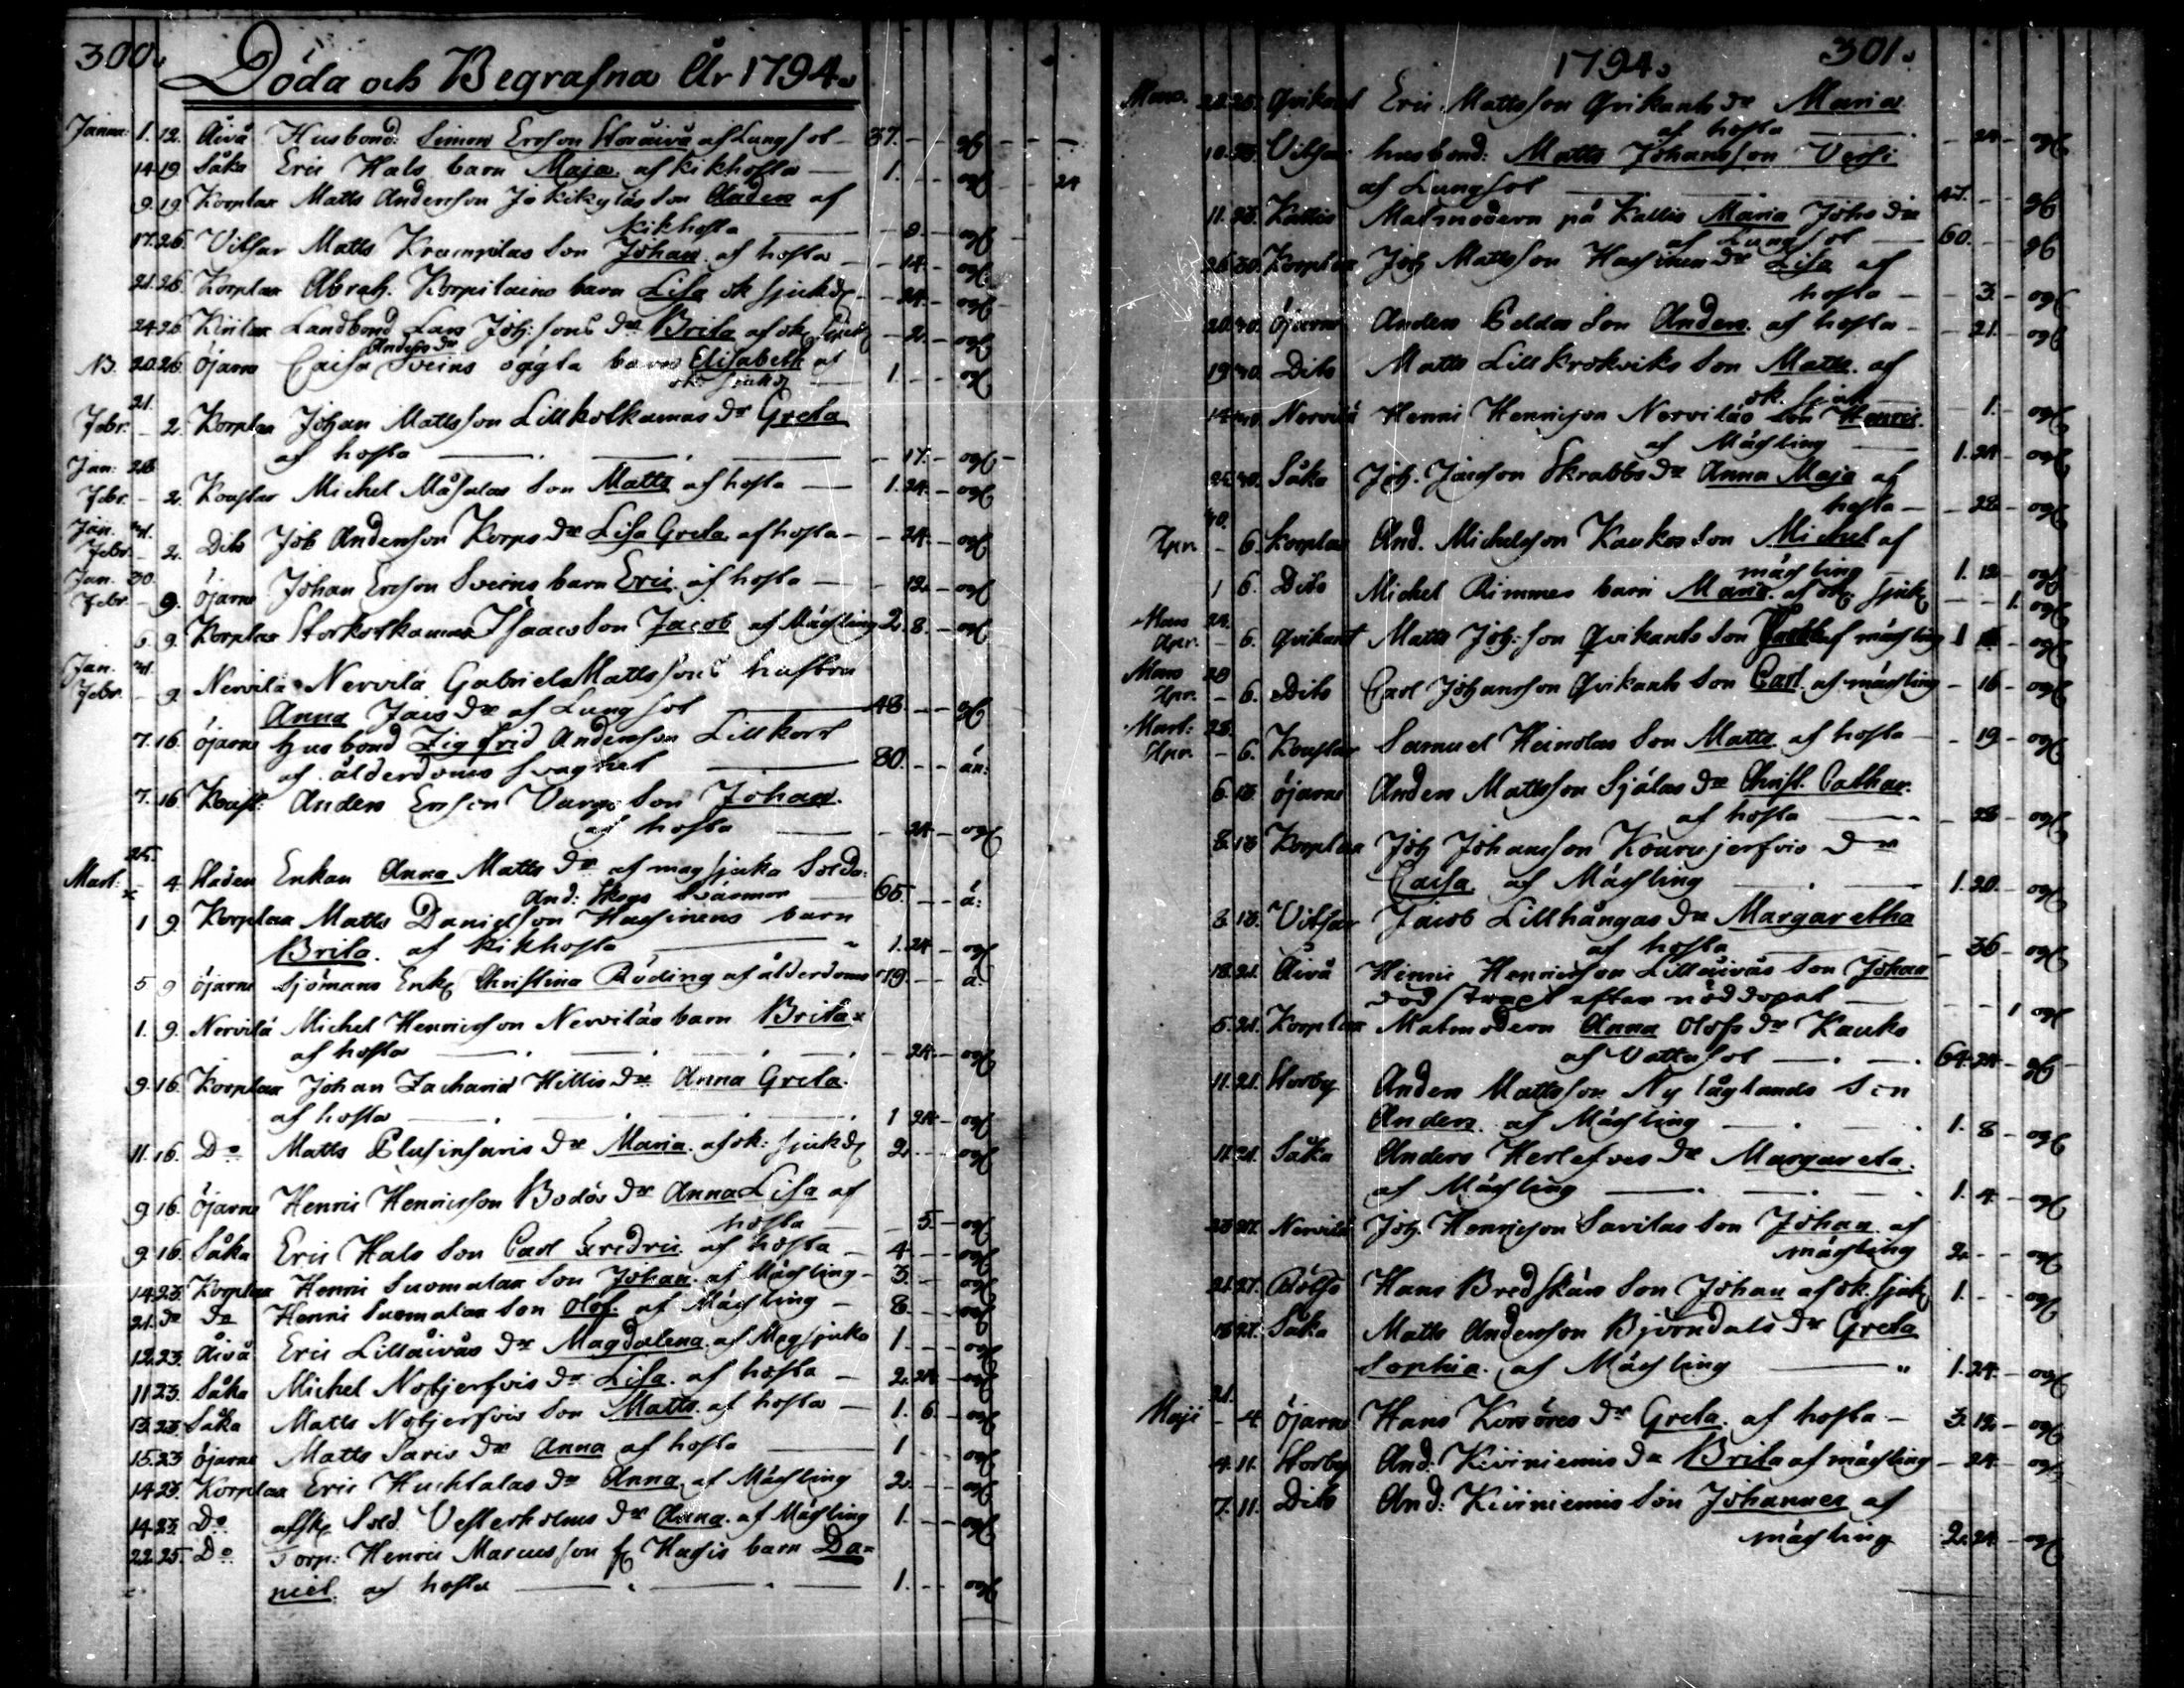 300.
Döda och Begrafna År 1794.
Januar: 1. 12. Åivå Husbond: Simon Ersson Storåivå af Lungsot - 37. - - gf
14. 19 Såka Eric Hals barn Maja af kikhosta - 1. - - ogf - - 24
9. 19 Korplax Matts Andersson Jokikyläs son Anders af
kikhosta - 9. - ogf
17. 26. Vitsar Matts Krampilas son Johan af hosta - 14. - ogf
21. 26. Korplax Abrah: Korpilains barn Lisa ok sjukd - 24. - ogf
24 26 Landbond Lars Joh:sons dr Brita af ok sjukd - 2. - ogf
Anders dr
N. 20. 26. Öjarne Caisa Sveins oägta barn Elisabeth af
ok: sjukd 1. - - ogf
21.
Febr. - 2. Korplax Johan Mattsson Lillkolkamas dr Greta
af hosta - 17. - ogf -
Jan: 28
Febr. - 2. Michel Måsalas son Matts af hosta - 1. 24. - ogf
Jan. 31.
Febr. - 2. Dito Joh Andersson Korps dr Lisa Greta af hosta - 24. - ogf
Jan. 30.
Febr. - 9. Öjarne Johan Ersson Sveins barn Eric af hosta - 12. - ogf
6. 9. Korplax Storkolkamas Isaacs son Jacob af Mäsling 2. 8. - ogf
Jan. 31.
Febr. - 9 Nervilä Nervilä Gabriels Mattssons hustru
Anna Jacs dr af Lungsot 48 - - gf
7. 16. Öjarne Husbond Zigfrid Andersson Lillkors
af ålderdoms svaghet 80. - - än:
7. 16 Anders Ersson Vargs son Johan.
af hosta - 24 - ogf
25.
Mart: - 4. Staden Enkan Anna Matts dr af magsjuka Solda:
And: Skogs Svärmor 65. - - ä:
1 9. Korplax Matts Danielsson Hasinens barn
Brita. af kikhosta 1. 24 - ogf
5 9 Öjarne Sjömans Enk Christina Röding af ålderdoms 79. - - ä:
1. 9. Nervilä Michel Henricsson Nerviläs barn Brita
af hosta - 24. - ogf
9. 16. Korplax Johan Zacharid Hellis dr Anna Greta.
af hosta 1 24 - ogf
11. 16. Do Matts dr Maria. af ok: sjukd 2. - - ogf
9. 16. Öjarne Henric Henricsson Bodös dr Anna Lisa af
hosta - 5. - ogf
9. 16. Såka Eric Hals son Carl Fredric. af hosta - 4. - - ogf
14. 23. Korplax Henric Suomalax son Johan. af Mäsling - 3. - - ogf
21. do do Henric Suomalax son Olof. af Mäsling - 8. - - ogf
12. 23. Åivå Eric Lillåivås dr Magdalena. af Magsjuka 1 - - ogf
11 23. Såka Michel Nobjerfvis dr Lisa. af hosta - 2. 24 - ogf
13. 23. Såka Matts Nobjerfvis son Matts. af hosta - 1. 6 - ogf
15. 23 Öjarne Matts Saris dr Anna af hosta 1 - - ogf
14 23. Korplax Eric Huchtalas dr Anna af Mäsling 2. - - ogf
14. 23. Do afsk Sold. Vesterholms dr Anna. af Mäsling 1. - - ogf
22. 25. Do Torp: Henric Marcusson Hasis barn Da=
niel. af hosta 1. - - ogf
1794.
301.
Mars. Qvikant Eric Mattsson Qvikants dr Maria
af hosta - 24 - ogf
Vitsar husbond: Matts Johansson Versi
af Lungsot 47. - - gf
11. 23. Kallis Matmodern på Kallis Maria Johs dr
af Lungsot 60. - - gf
26. 30. Korplax Joh Mattsson Hasinens dr Lisa af
hosta - 3. - ogf
Öjarne Anders Peldos son Anders. af hosta - 21. - ogf
19 30. Dito Matts Lillkrokviks son Matts. af
ok. sjuk 1. - - ogf
Nervilä Henric Henricsson Nerviläs son Henric.
af Mäsling 1. 24 - ogf
Såka Joh. Jacsson Skrabbs dr Anna Maja af
hosta - - 28 - ogf
Apr. - 6. Korplax And. Michelsson Kaukos son Michel af
mäsling 1. 12 - ogf
1 6. Dito Michel Rimmes barn Maria. af ok sjukd - - 1. ogf
Mars 24.
Apr. - 6. Qvikant Matts Joh:son Qvikants son af mäsling 1 - ogf
Mars 28
Apr. - 6. Dito Carl Johansson Qvikants son Carl. af mäsling - 16 - ogf
Mart: 28.
Apr. - 6. Samuel Heinolas son Matts af hosta - 19 - ogf
6. 13. Öjarne Anders Mattsson Själas dr Christ. Cathar.
af hosta - 28 - ogf
8. 13 Korplax Joh Johansson Kourujerfvis dr
Caisa af Mäsling 1. 20. - ogf
8. 13. Vitsar Jacob Lillhångas dr Margaretha
af hosta - 36 - ogf
18. 21. Åivå Henric Henricsson Lillåivås son Johan
död strax efter nöddopet - - 1 ogf
5. 21. Korplax Matmodern Anna Olofs dr Kauko
af Vattusot 64. 24 - gf
11. 21. Storby Anders Mattsson Nylåglands son
Anders. af Mäsling 1. 8 - ogf
11 21. Såka Anders Herlefves dr Margareta.
af Mäsling 1. 4 - ogf
Nervilä Joh. Henricsson Savilas son Johan af
mäsling 2. - - ogf
21. 27. Bölso Hans Bredskärs son Johan af ok. sjuk 1. - - ogf
18 27. Såka Matts Andersson Björndals dr Greta
Sophia. af Mäsling 1. 24. - ogf
21.
Maji - 4. Öjarne Hans Korsöres dr Greta. af hosta - 3. 12 - ogf
4. 11. Storby And: Kiviniemis dr Brita af mäsling - 24. - ogf
7. 11. Dito And: Kiviniemis son Johannes af
mäsling 2. 24 - ogf